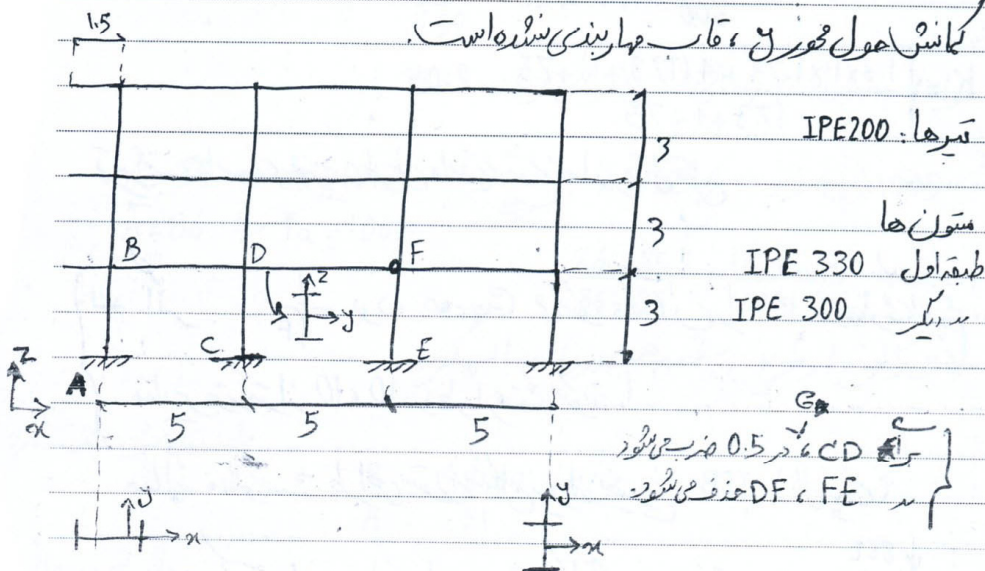 کمانش حول محور y ، قاب مهاربندی نشده است.
1.5
تیرها: IPE200
3
ستون ها
3
B D F
طبقه اول IPE 330
z
y
دیگر IPE 300
3
C E
A
z
x
5 5 5
G
برای CD ، در 0.5 ضرب می‌شود
DF ، FE حذف می‌شود.
y
x
y
x